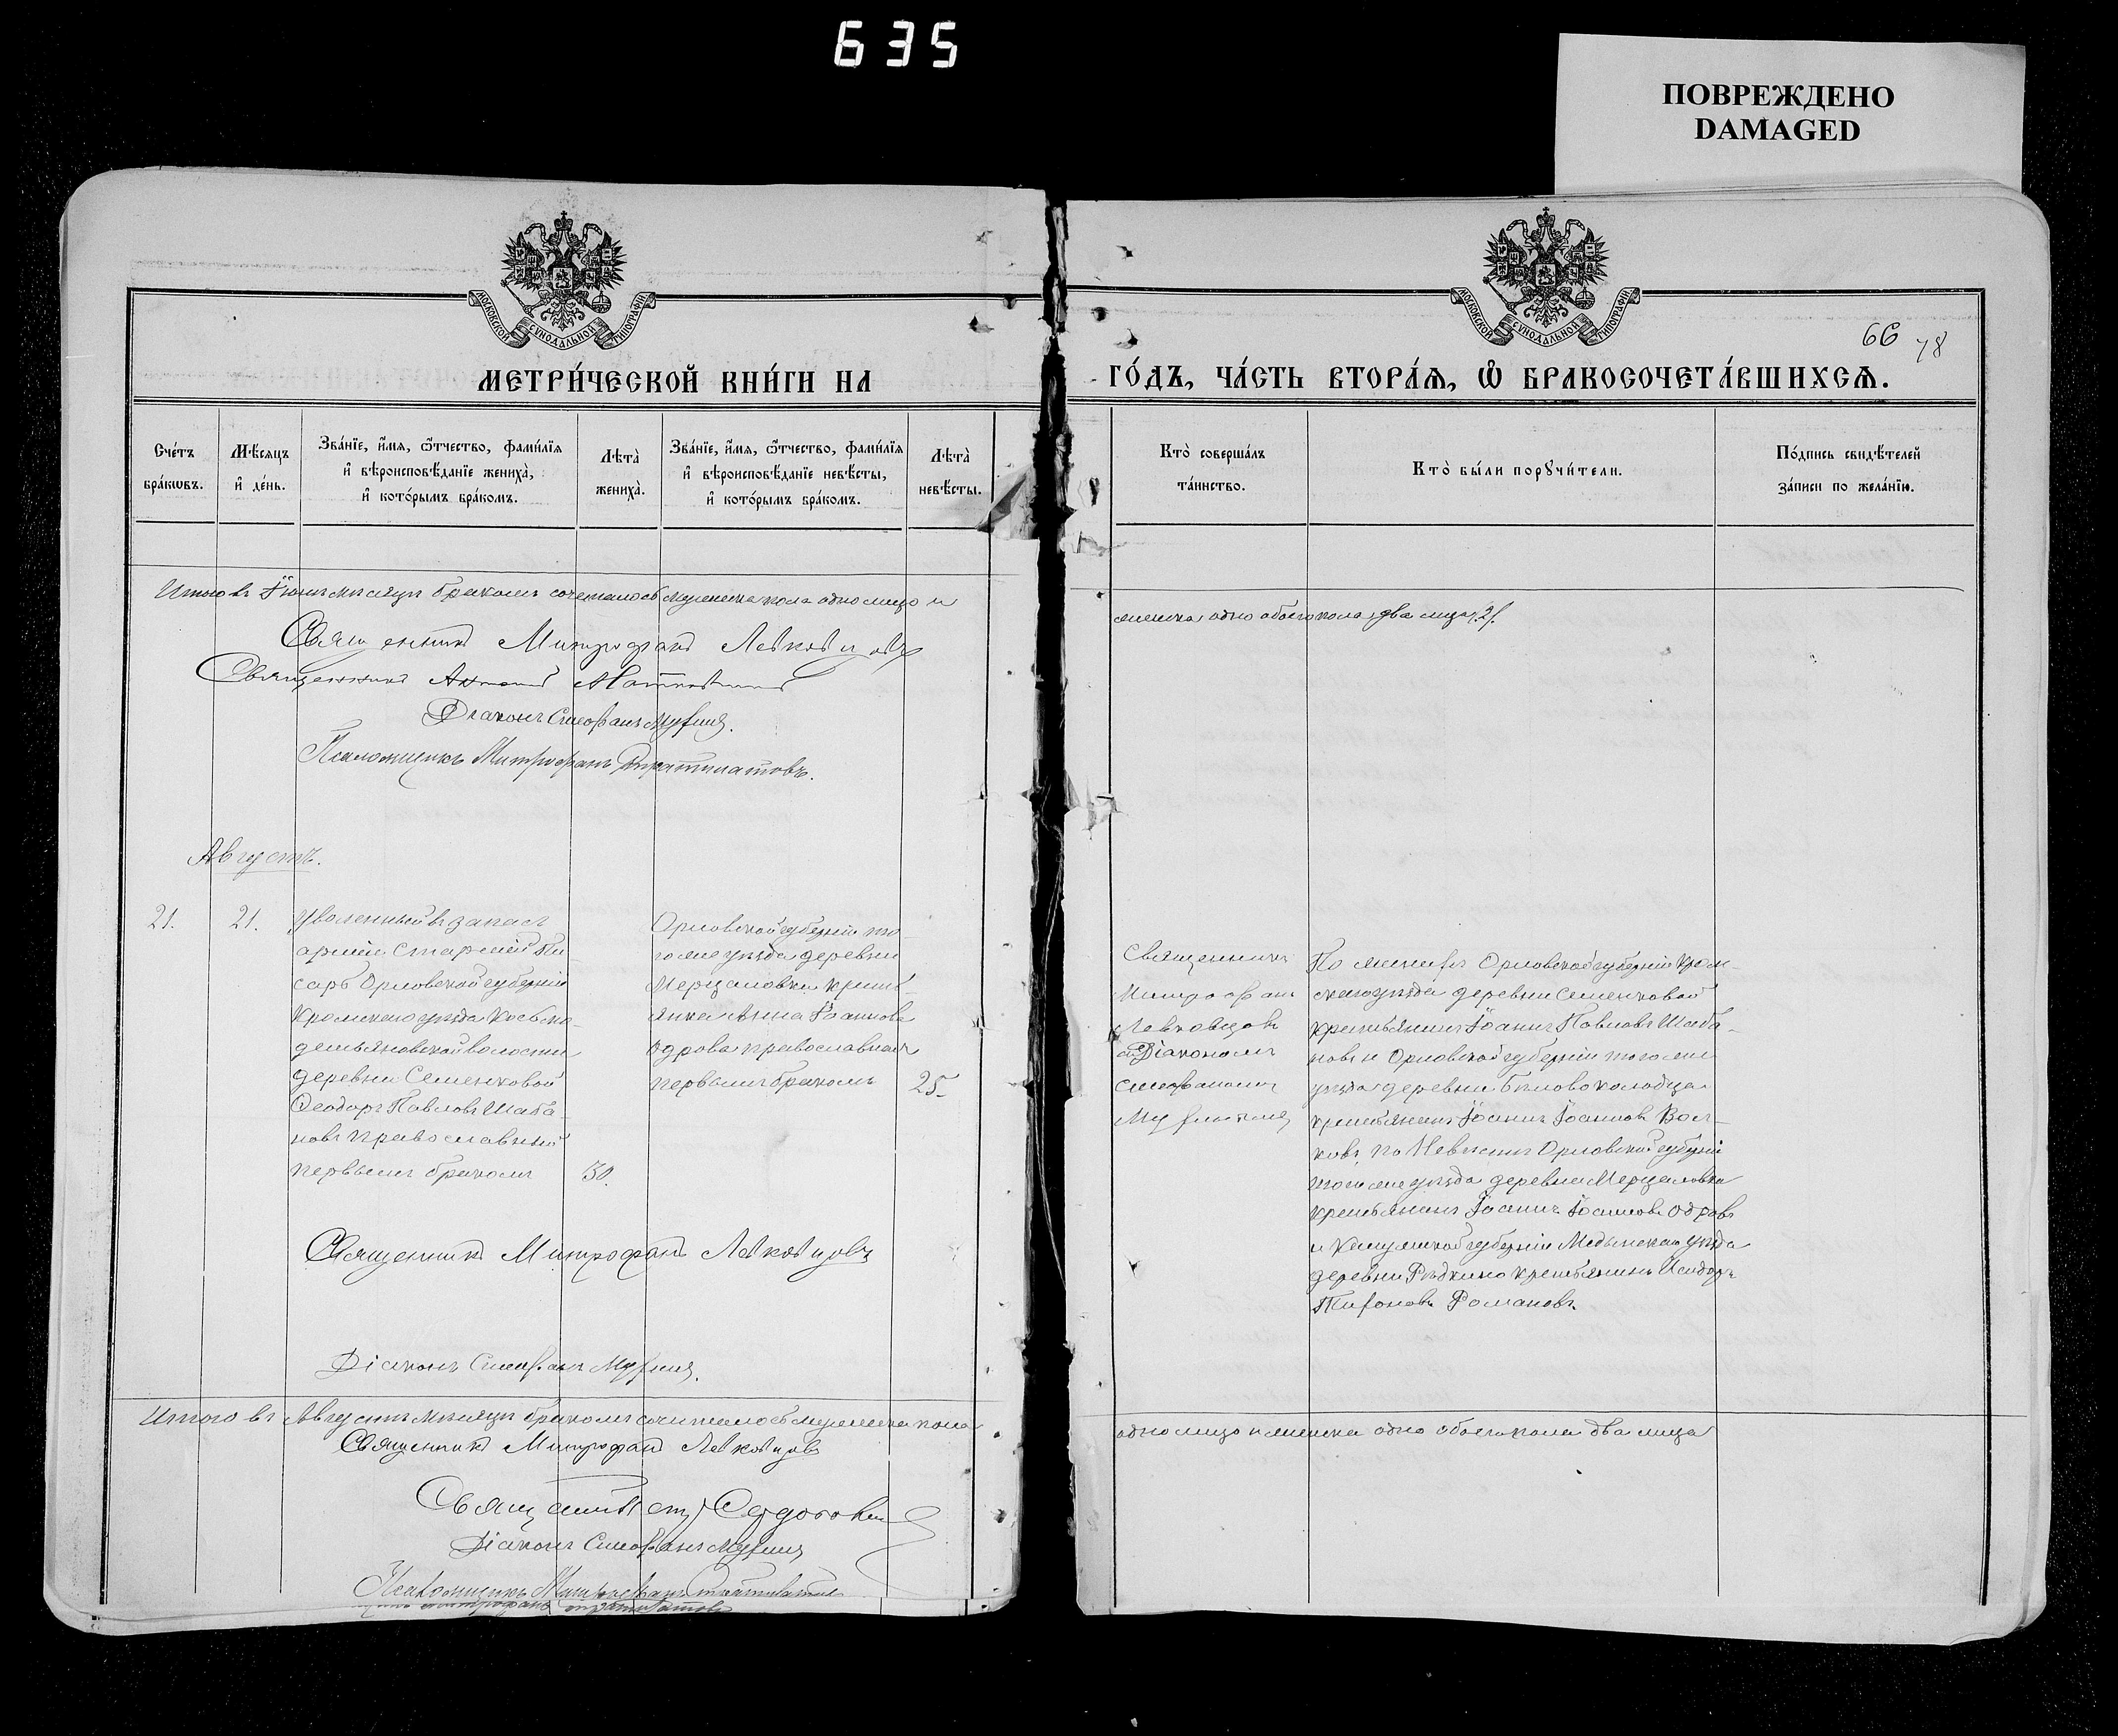 635
ПОВРЕЖДЕНО
DAMAGED
МОСКОВСКОЙ СѴНОДАЛЬНОЙ ТИПОГРАФІИ
МОСКОВСКОЙ СѴНОДАЛЬНОЙ ТИПОГРАФІИ
66 78
МЕТРИ́ЧЕСКОЙ КНИ́ГИ НА
ГО́ДЪ, ЧА́СТЬ ВТОРА́Ѧ, Ѽ БРАКОСОЧЕТА́ВШИХСѦ.
Сче́тъ
бра́кѡвъ.
Мѣ́сяцъ
и҆ де́нь.
Зва́нїе, и҆́мя, ѻ҆́тчество, фами́лїя
и҆ вѣроисповѣ́данїе жениха̀,
и҆ кото́рымъ бра́комъ.
Лѣта̀
жениха̀.
Зва́нїе, и҆́мя, ѻ҆́тчество, фами́лїя
и҆ вѣроисповѣ́данїе невѣ́сты,
и҆ кото́рымъ бра́комъ.
Лѣта̀
невѣ́сты.
Кто̀ соверша́лъ
та́инство.
Кто̀ бы́ли порꙋчи́тели.
По́дпись свидѣ́телей
за́писи по жела́нїю.
Итого въ Іюнѣ мѣсяцѣ бракомъ сочеталось мужеска пола одно лицо и
женска одно обоего пола два лица /2/.
Священникъ Митрофанъ Левковцовъ
Священникъ
Діаконъ Стефанъ
Псаломщикъ Митрофанъ
Августъ.
21.
21.
Уволенный въ запасъ
арміи Старшій Пи-
сарь Орловской губерніи
Кромскаго уѣзда Космо-
демьяновской волости
деревни Семенковой
Ѳеодоръ Павловъ Шаба-
новъ православный
первымъ бракомъ
30.
Орловской губерніи то-
го же уѣзда деревни
Мерцаловки кресть
янка Анна Іоаннова
Одрова православная
первымъ бракомъ
25.
Священникъ
Митрофанъ
Левковцовъ
съ Діакономъ
Стефаномъ
По женихѣ Орловской губерніи Кром-
скаго уѣзда деревни Семенковой
крестьянинъ Іоаннъ Павловъ Шаба-
новъ и Орловской губерніи того же
уѣзда деревни Бѣлово колодца
крестьянинъ Іоаннъ Іоанновъ Вол-
ковъ, по Невѣстѣ Орловской губерніи
того же уѣзда деревни Мерцаловки
крестьянинъ Іоаннъ Іоанновъ Одровъ
и Калужской губерніи Медынскаго уѣзда
деревни Рѣдкино крестьянинъ Исидоръ
Тихоновъ Романовъ.
Священникъ Митрофанъ Левковцовъ
Діаконъ Стефанъ
Итого въ Августѣ мѣсяцѣ бракомъ сочеталось мужеска пола
одно лицо и женска одно обоего пола два лица
Священникъ Митрофанъ Левковцовъ
Діаконъ Стефанъ
Псаломщикъ Митрофанъ